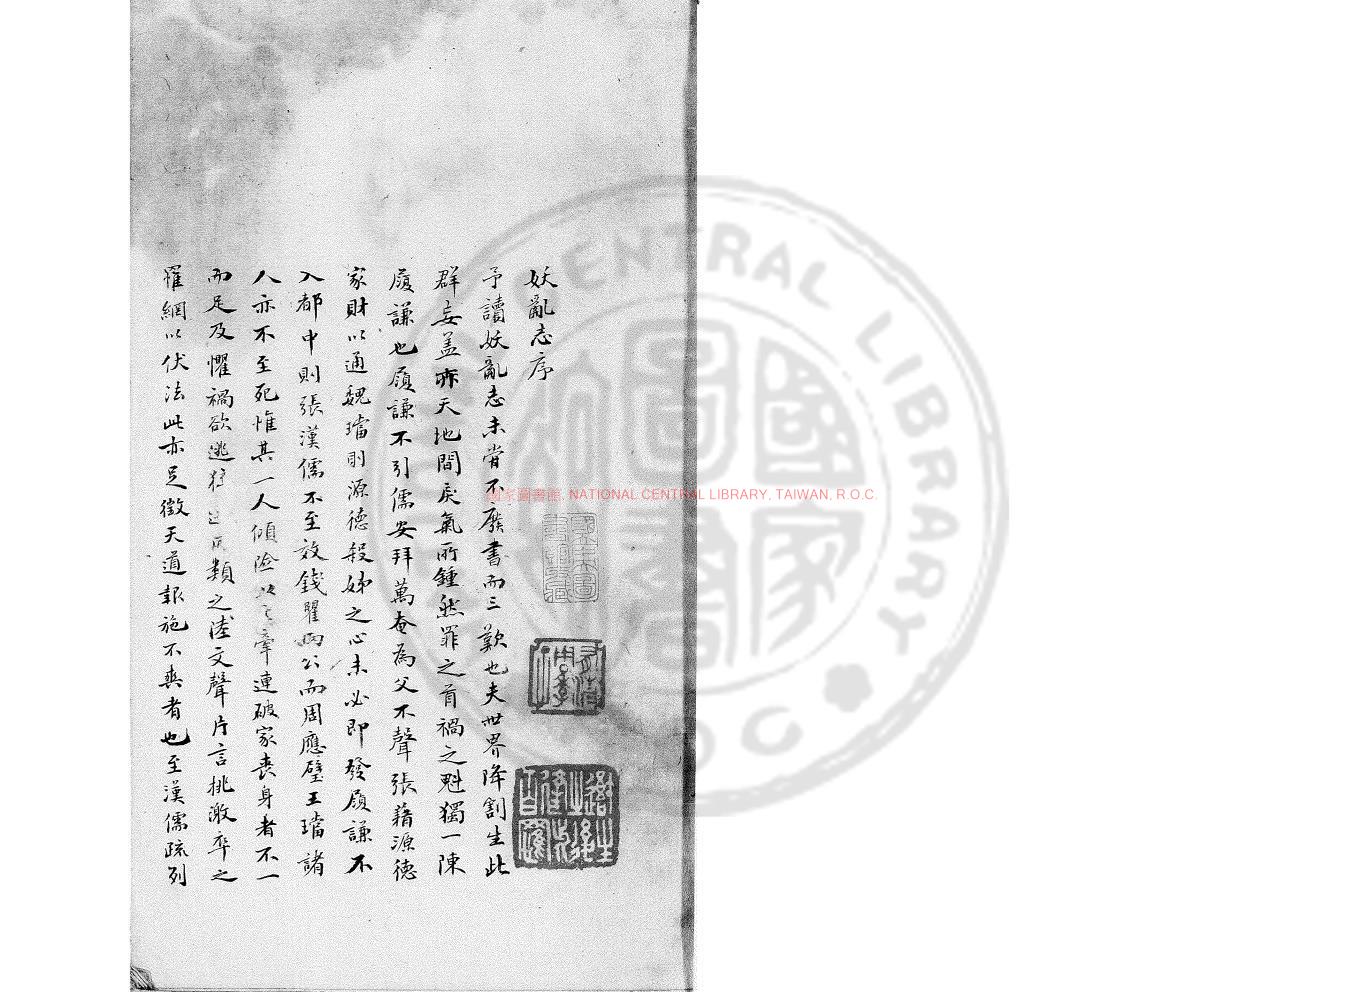 妖亂志序
予讀妖亂志未嘗不廢書而三歎也夫世界降割生此
群妄盖亦天地間戾氣所鍾然罪之首禍之魁獨一陳
履謙也履謙不引儒安拜萬奄為父不聲張藉源德
家財以通魏璫則源德殺姊之心未必即發履謙不
入都中則張漢儒不至效錢瞿兩公而周應璧王璠諸
人亦不至死惟其一人傾險 牽連破家喪身者不一
而足及懼禍欲逃 類之陸文聲片言挑激卒之
罹網以伏法此亦足徵天道報施不爽者也至漢儒疏列
國家圖書館, NATIONAL CENTRAL LIBRARY, TAIWAN, R.O.C.
CENTRAL LIBRARY
ROC
國家圖書館